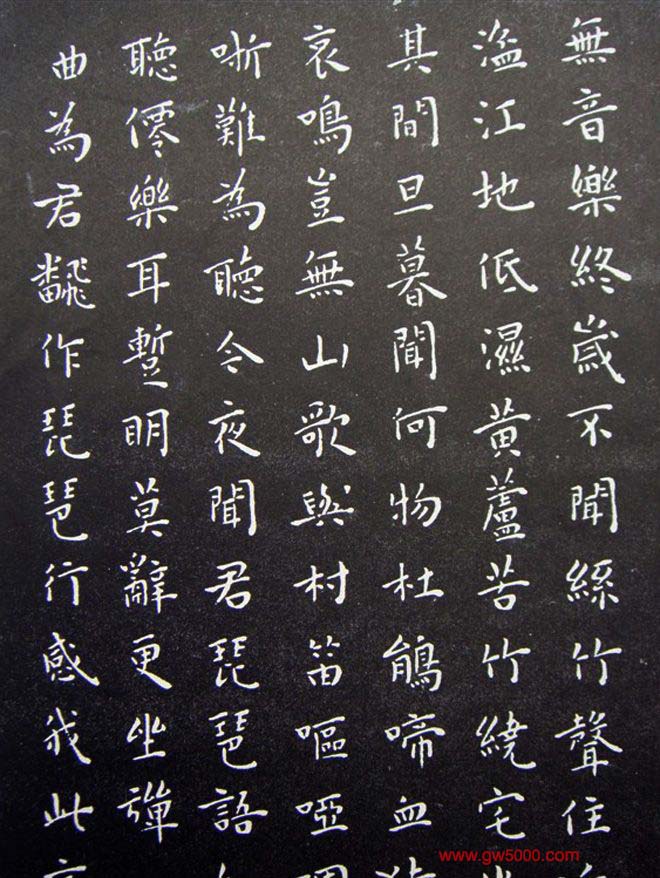 無音樂終歲不聞絲竹聲住
湓江地低濕黃蘆苦竹繞宅
其間旦暮聞何物杜鵑啼血
哀鳴豈無山歌與村笛嘔啞
哳難為聽今夜聞君琵琶語
聽僊樂耳暫明莫辭更坐彈
曲為君飜作琵琶行感我此
www.gw5000.com